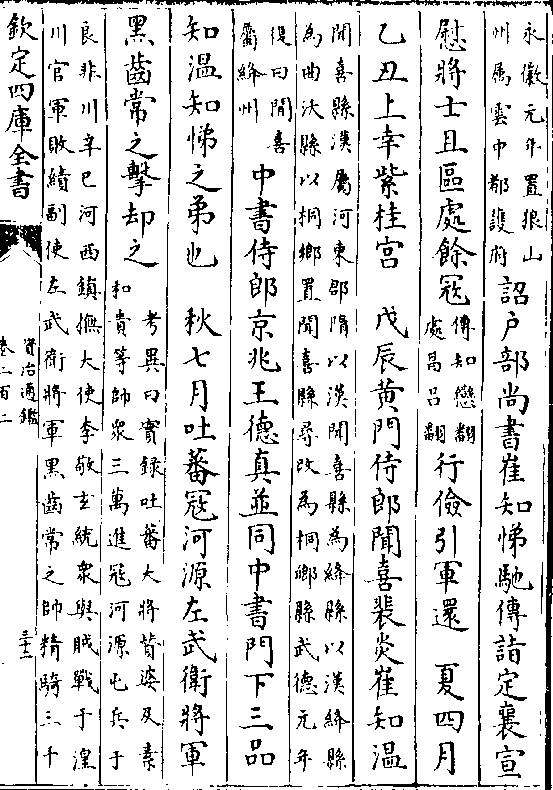 永徽元年置狼山
州屬雲中都護府
詔户部尚書崔知悌馳傳詣定襄宣
慰將士且區處餘冦
傳知戀翻
處昌吕翻
行儉引軍還　夏四月
乙丑上幸紫桂宫　戊辰黄門侍郎聞喜裴炎崔知温
聞喜縣漢屬河東郡隋以漢聞喜縣為絳縣以漢絳縣
為曲沃縣以桐鄉置聞喜縣尋改為桐鄉縣武德元年
復曰聞喜
屬絳州
中書侍郎京兆王德真並同中書門下三品
知温知悌之弟也　秋七月吐蕃冦河源左武衛將軍
黑齒常之擊却之
考異曰實録吐蕃大將贊婆及素
和貴等帥衆三萬進冦河源屯兵于
良非川辛巳河西鎮撫大使李敬玄統衆與賊戰于湟
川官軍敗績副使左武衛將軍黑齒常之帥精騎三千
欽定四庫全書
資治通鑑
卷二百二
三十二